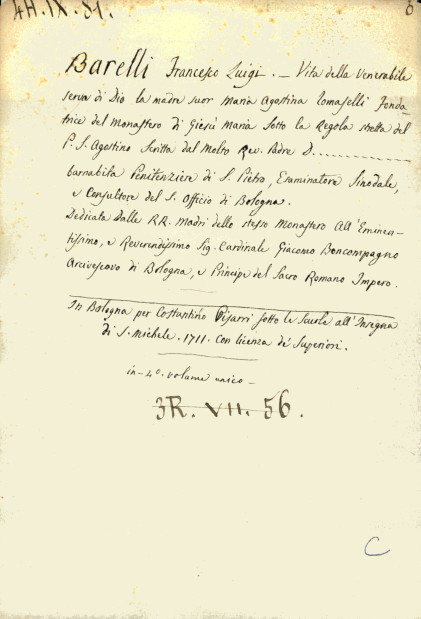 4H.IX.31.
6
Barelli Francesco Luigi. — Vita della Venerabile
serva di Dio la madre suor Maria Agostina Tomaselli Fonda-
trice del Monastero di Giesù Maria sotto la Regola stretta del
P. S. Agostino Scritta dal Molto Rev. Padre D. ..........
barnabita Penitenziere di S. Pietro, Esaminatore Sinodale,
e Consultore del S. Officio di Bologna.
Dedicata Dalle RR. Madri dello stesso Monastero All'Eminen-
tissimo, e Reverendissimo Sig. Cardinale Giacomo Boncompagno
Arcivescovo di Bologna, e Principe del Sacro Romano Impero.
In Bologna per Costantino Pisarri sotto le Scuole all'Insegna
di S. Michele. 1711. con licenza de' Superiori.
in-4°. volume unico—
3R. VII. 56.
C